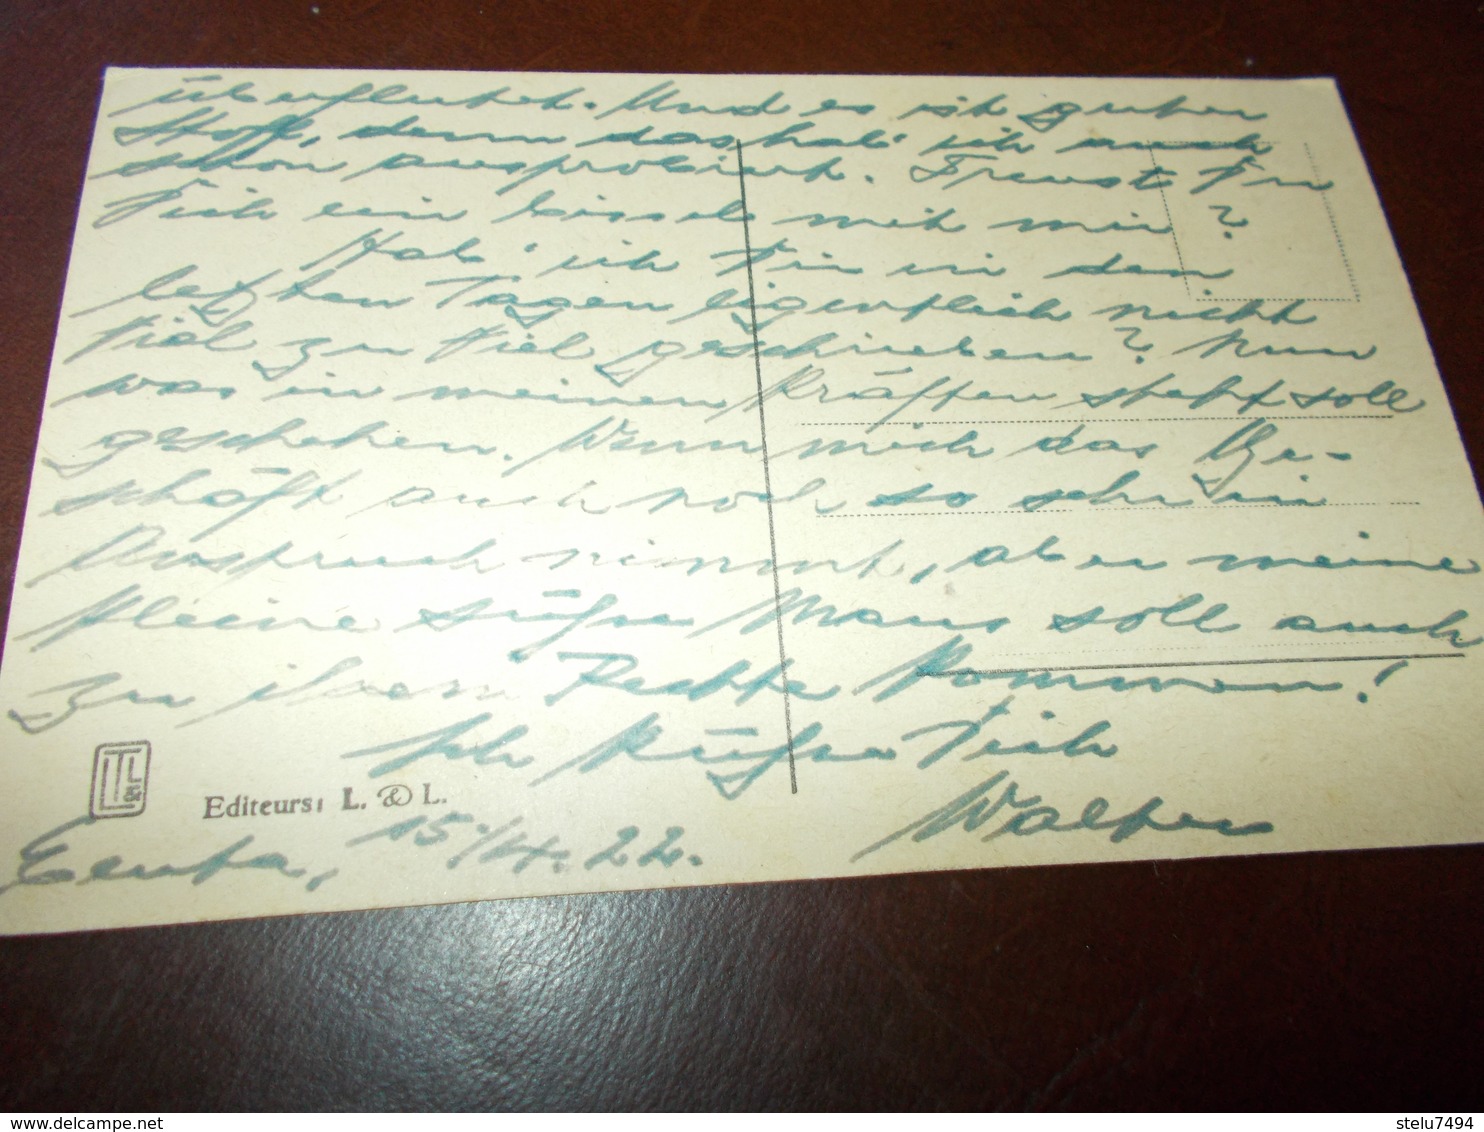 überflutet. Und es ist guter
Stoff, denn das hab' ich auch
schon ausprobiert. Freust Du
Dich ein bissele mit mir?
Hab' ich Dir in den
letzten Tagen eigentlich nicht
viel zu viel geschrieben? Nun
was in meinen Kräften steht soll
geschehen. Wenn mich das Ge-
schäft auch noch so sehr in
Anspruch nimmt, aber meine
kleine süße Maus soll auch
zu ihrem Rechte kommen!
Ich küße Dich
Walter
LTL&
Editeurs: L. & L.
15./IX. 22.
stelu7494